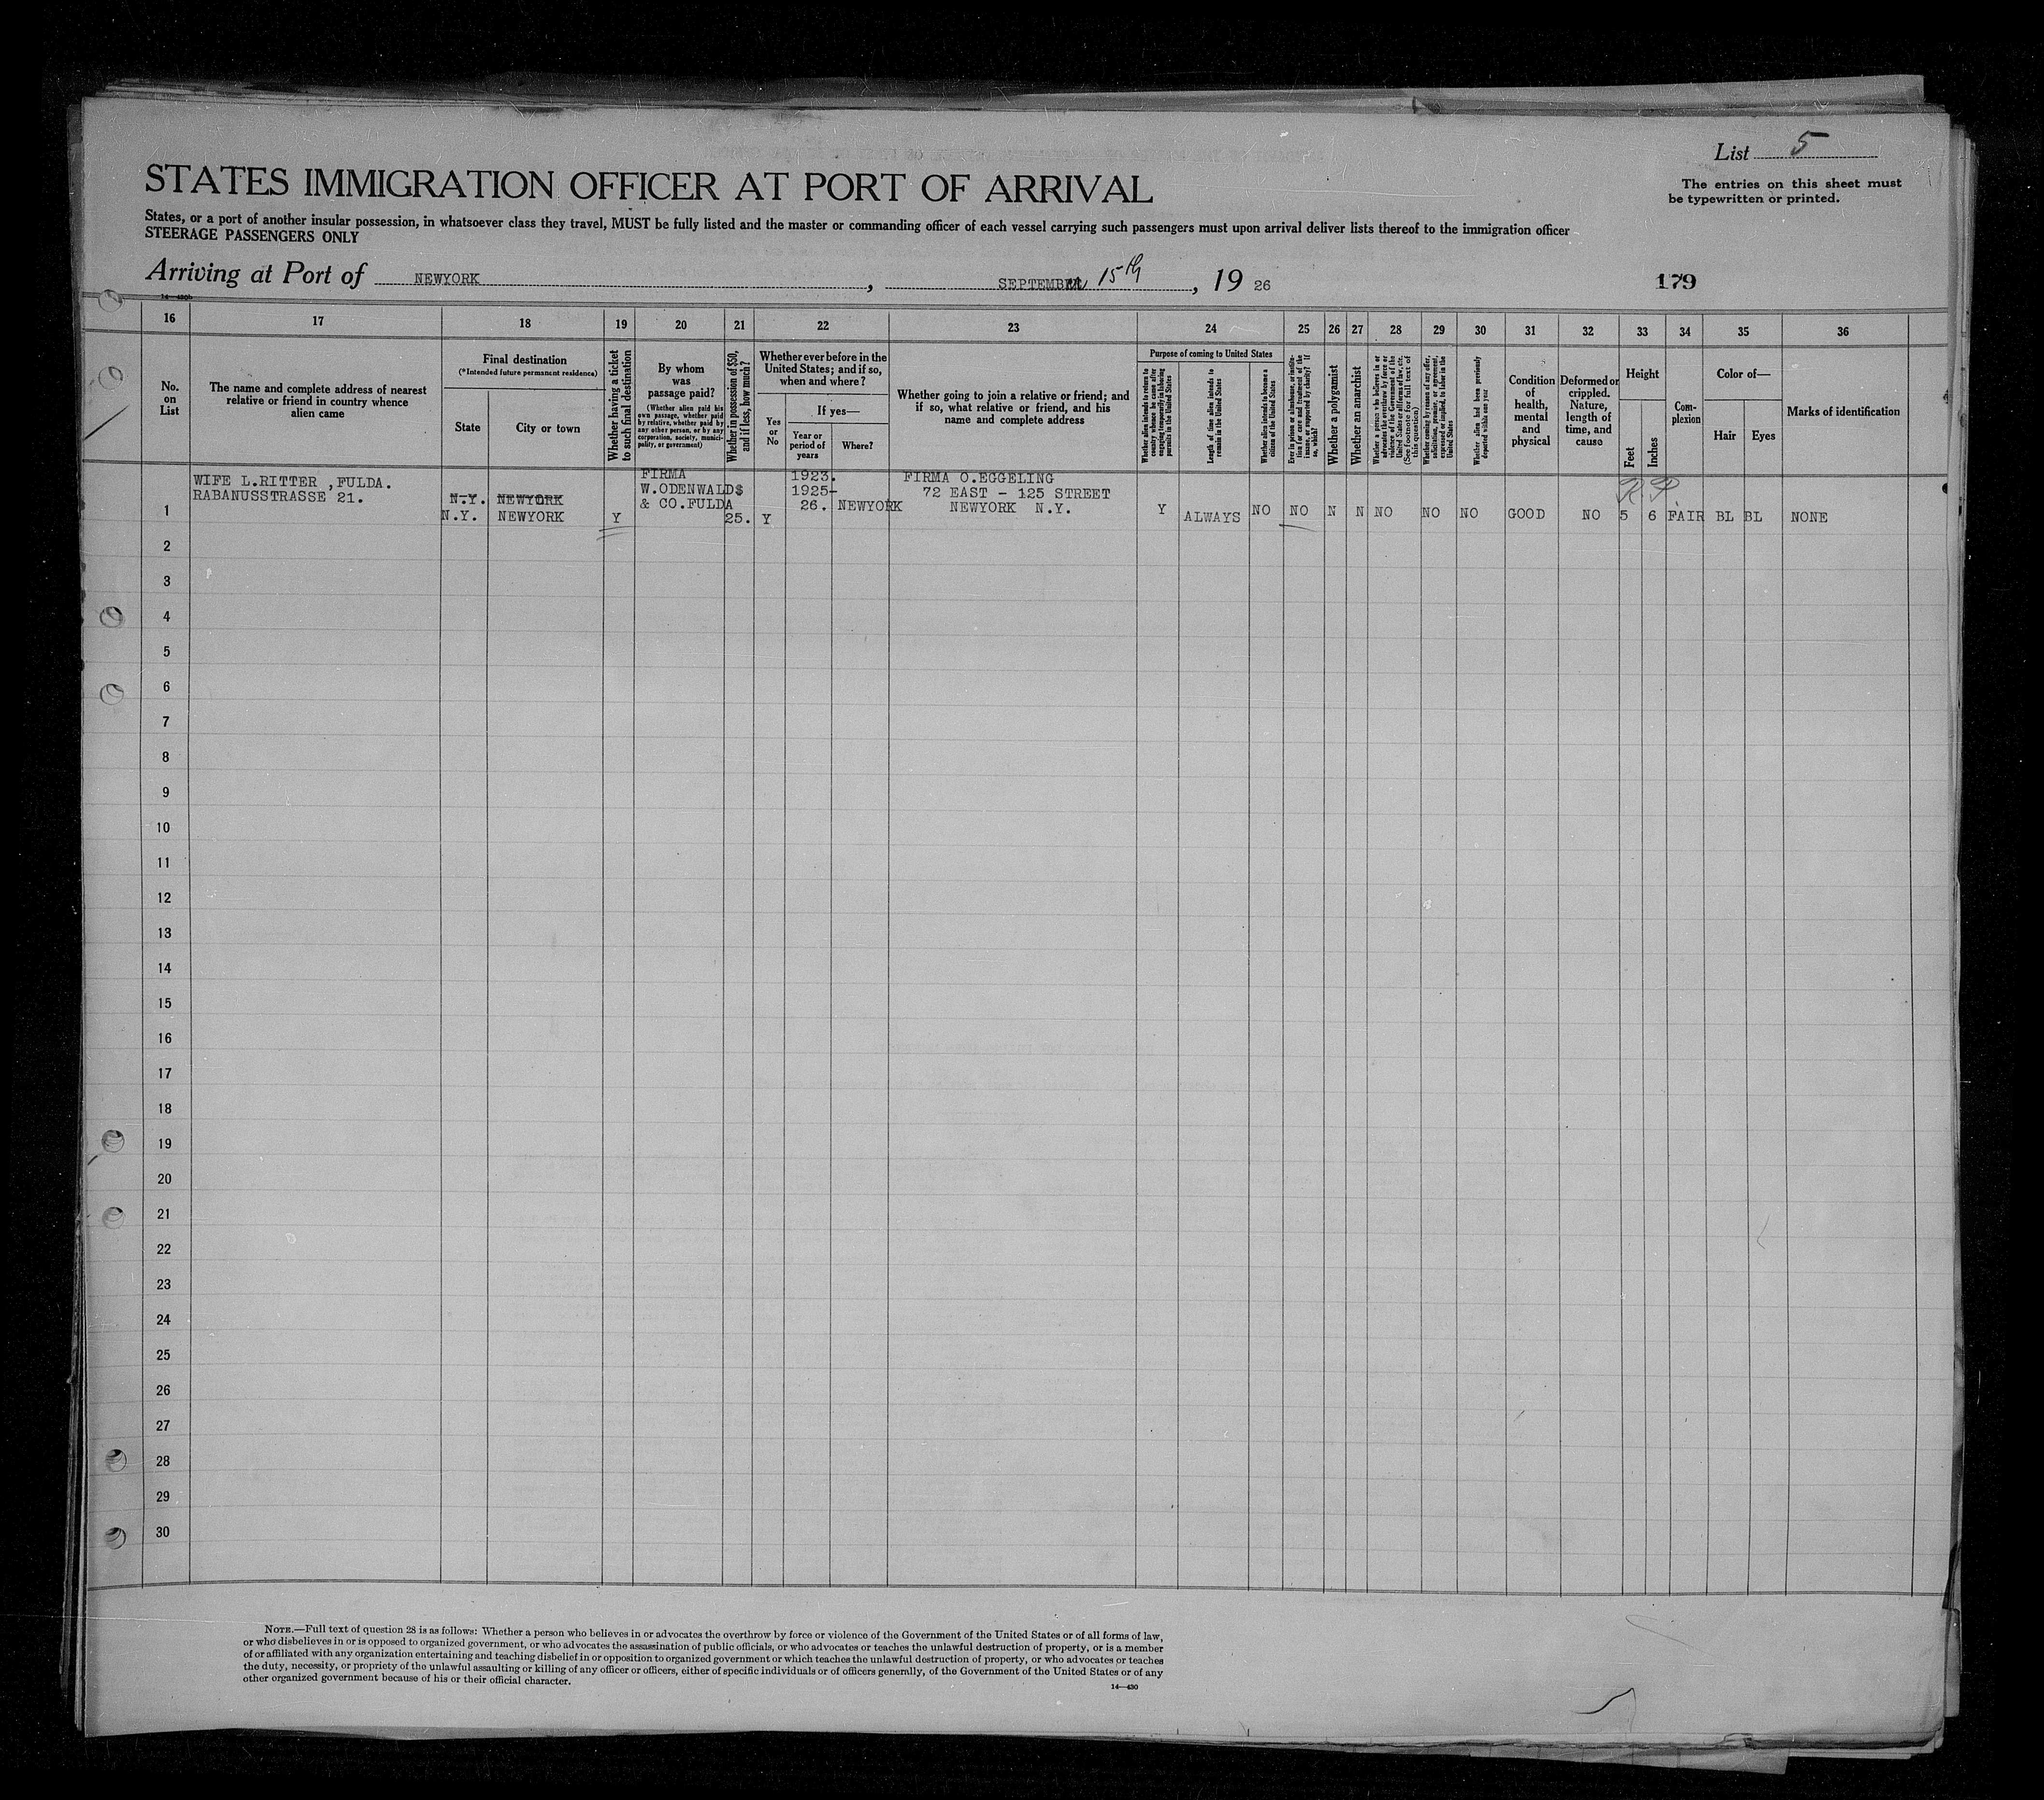 List 5
The entries on this sheet must
be typewritten or printed.
STATES IMMIGRATION OFFICER AT PORT OF ARRIVAL
States, or a port of another insular possession, in whatsoever class they travel, MUST be fully listed and the master or commanding officer of each vessel carrying such passengers must upon arrival deliver lists thereof to the immigration officer
STEERAGE PASSENGERS ONLY
Arriving at Port of NEWYORK, SEPTEMBER 15th, 19 26
179
16 17 18 19 20 21 22 23 24 25 26 27 28 29 30 31 32 33 34 35 36
No. on List
The name and complete address of nearest
relative or friend in country whence
alien came
Final destination
(*Intended future permanent residence)
State
City or town
Whether having a ticket
to such final destination
By whom
was
passage paid?
(Whether alien paid his
own passage, whether paid
by relative, whether paid by
any other person, or by any
corporation, society, munici-
pality, or government)
Whether in possession of $50,
and if less, how much?
Whether ever before in the
United States; and if so,
when and where?
Yes
or
No
If yes—
Year or
period of
years
Where?
Whether going to join a relative or friend; and
if so, what relative or friend, and his
name and complete address
Purpose of coming to United States
Whether alien intends to return to
country whence he came after
engaging temporarily in laboring
pursuits in the United States
Length of time alien intends to
remain in the United States
Whether alien intends to become a
citizen of the United States
Ever in prison or almshouse, or institu-
tion for care and treatment of the
insane, or supported by charity? If
so, which?
Whether a polygamist
Whether an anarchist
Whether a person who believes in or
advocates the overthrow by force or
violence of the Government of the
United States or all forms of law, etc.
(See footnote for full text of
this question)
Whether coming by reason of any offer,
solicitation, promise, or agreement,
expressed or implied, to labor in the
United States
Whether alien had been previously
deported within one year
Condition
of
health,
mental
and
physical
Deformed or
crippled.
Nature,
length of
time, and
cause
Height
Feet
Inches
Com-
plexion
Color of—
Hair
Eyes
Marks of identification
WIFE L.RITTER ,FULDA.
RABANUSSTRASSE 21.
N.Y. NEWYORK
N.Y. NEWYORK
Y
FIRMA
W.ODENWALDS
& CO.FULDA
25.
Y
1923.
1925-
26.
NEWYORK
FIRMA O.EGGELING
72 EAST - 125 STREET
NEWYORK N.Y.
Y ALWAYS NO NO N N NO NO NO GOOD NO 5 6 FAIR BL BL NONE
1
2
3
4
5
6
7
8
9
10
11
12
13
14
15
16
17
18
19
20
21
22
23
24
25
26
27
28
29
30
NOTE.—Full text of question 28 is as follows: Whether a person who believes in or advocates the overthrow by force or violence of the Government of the United States or of all forms of law,
or who disbelieves in or is opposed to organized government, or who advocates the assassination of public officials, or who advocates or teaches the unlawful destruction of property, or is a member
of or affiliated with any organization entertaining and teaching disbelief in or opposition to organized government or which teaches the unlawful destruction of property, or who advocates or teaches
the duty, necessity, or propriety of the unlawful assaulting or killing of any officer or officers, either of specific individuals or of officers generally, of the Government of the United States or of any
other organized government because of his or their official character.
14—430